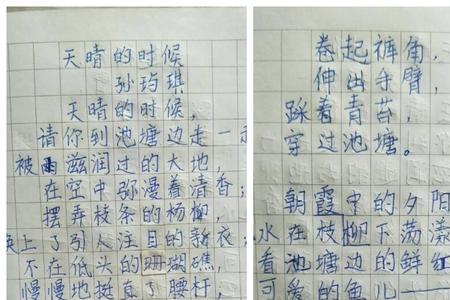 天晴的时候
孙玓琪
天晴的时候，
请你到池塘边走一走
被雨滋润过的大地，
在空中弥漫着清香；
摆弄枝条的杨柳，
换上了引人注目的新衣；
不在低头的珊瑚礁，
慢慢地挺直了腰杆，
卷起裤角，
伸出手臂，
踩着青苔，
穿过池塘。
朝霞中的夕阳
水在枝柳下荡漾
看池塘边的鲜红
可爱的鱼儿——